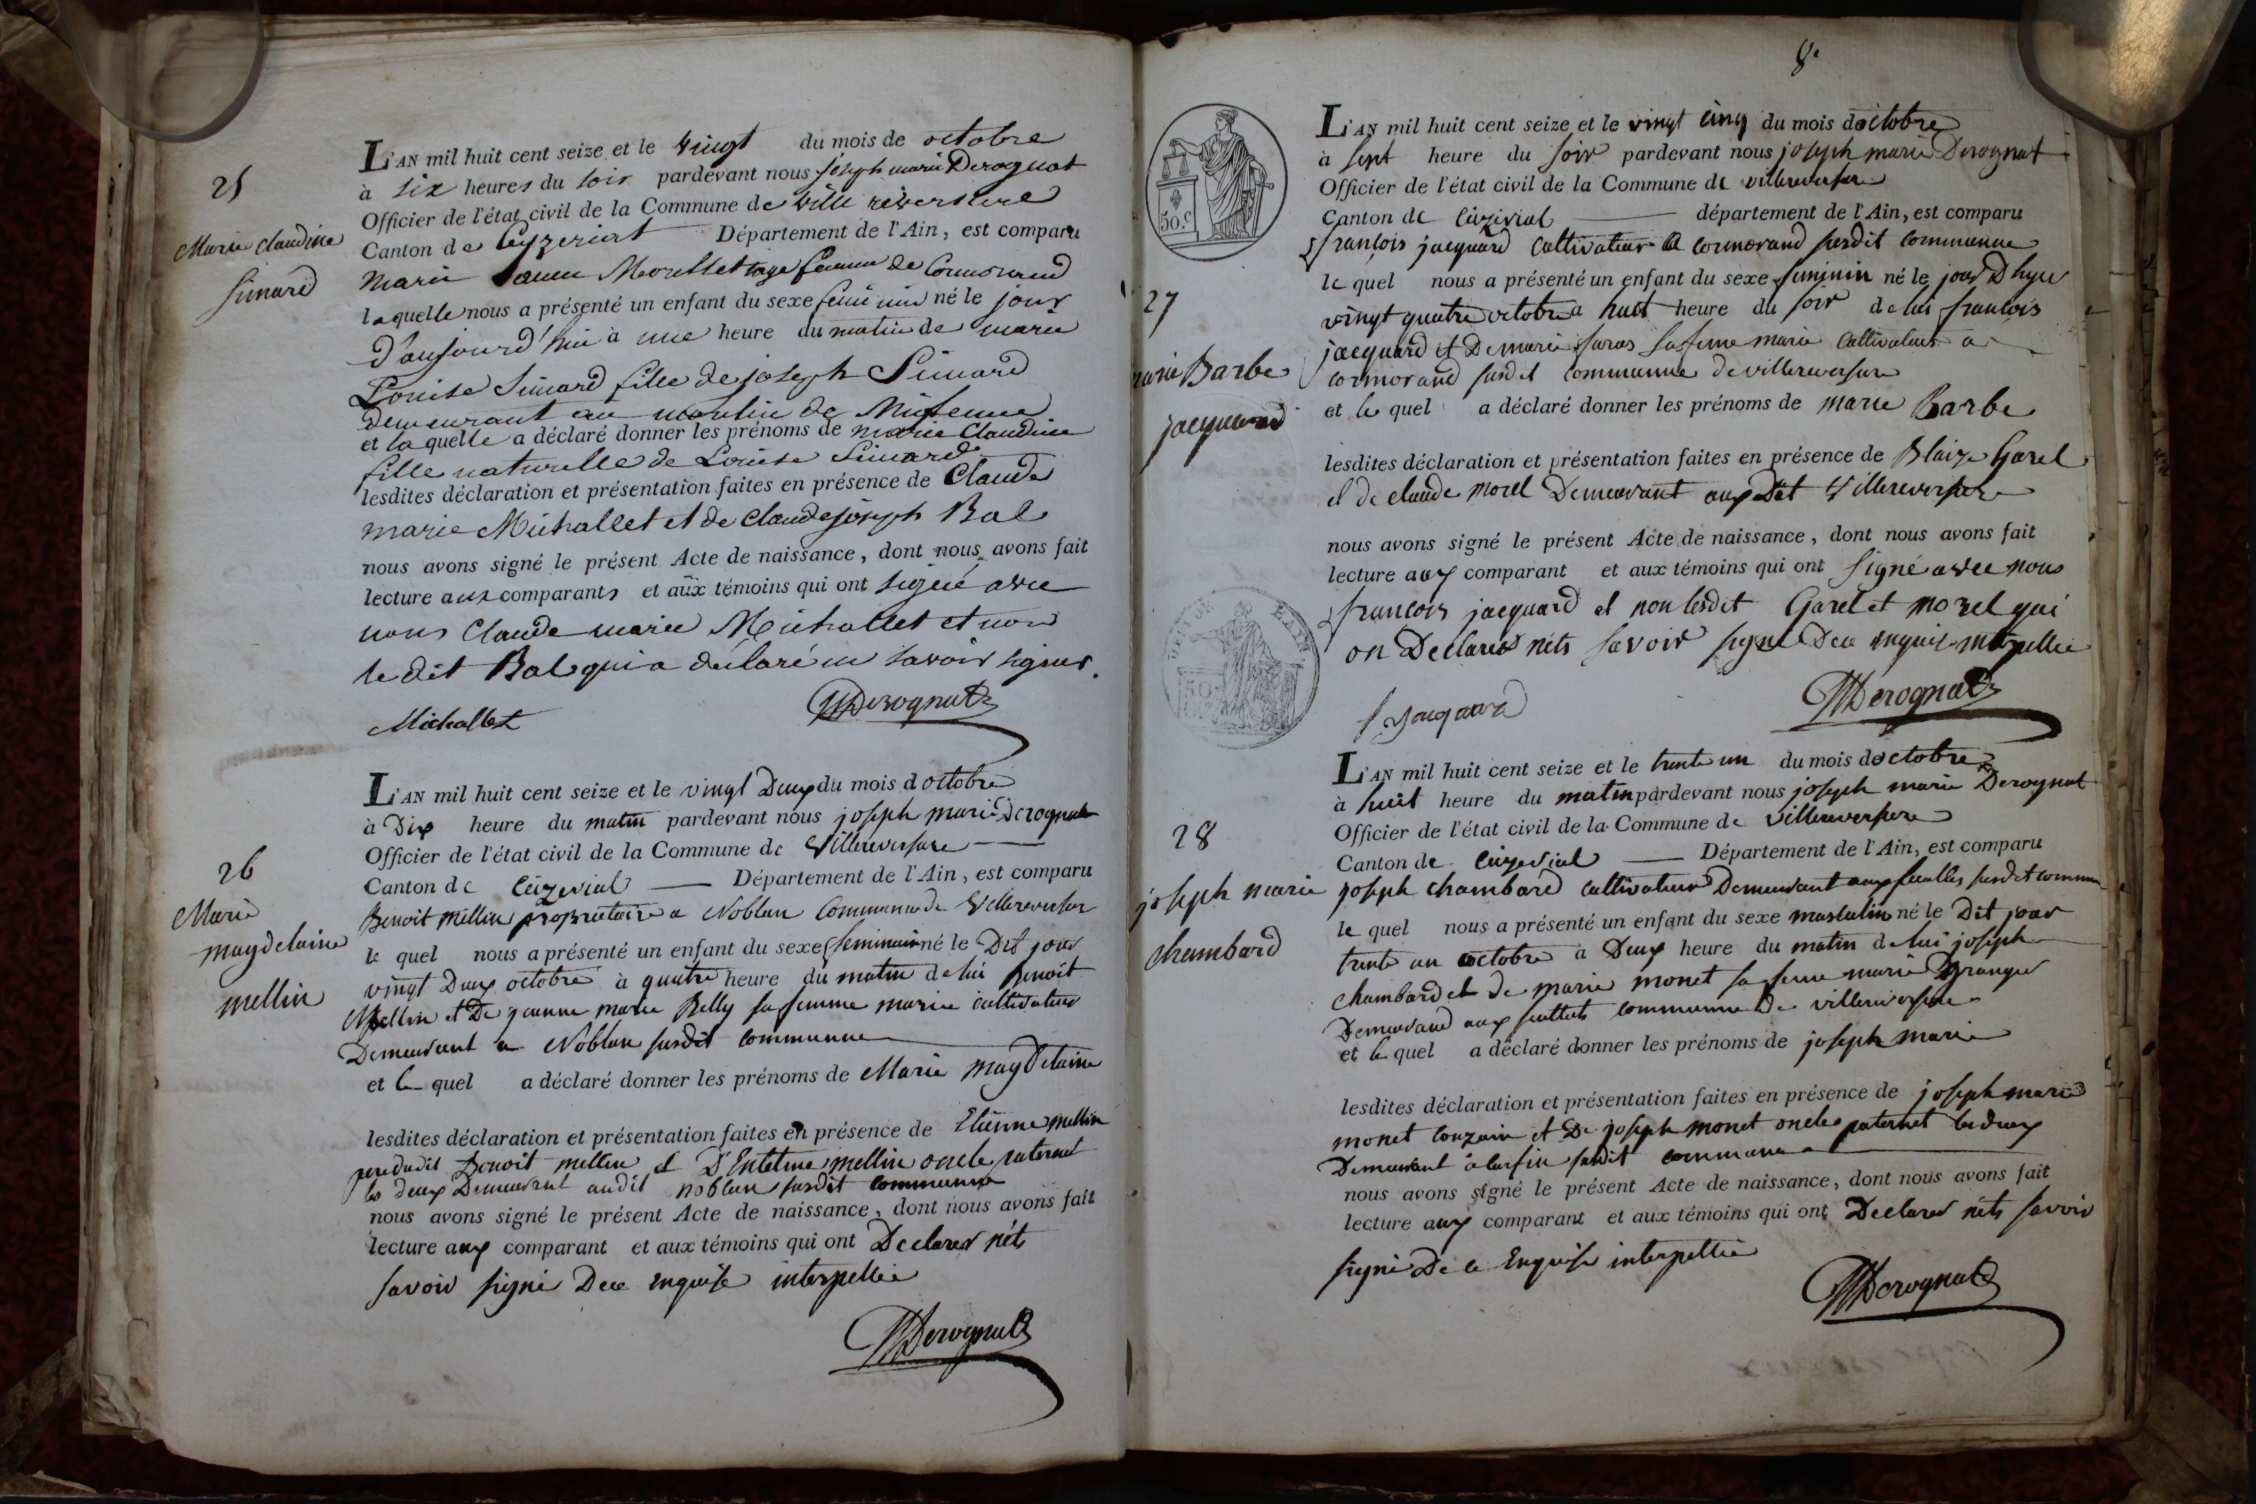 25
Marie Claudine
Simard
L'AN mil huit cent seize et le vingt du mois de octobre
à six heures du soir pardevant nous joseph marie Derognat
Officier de l'état civil de la Commune de ville reversure
Canton de Ceyzeriat Département de l'Ain, est comparu
Marie sage femme de Cormorand
laquelle nous a présenté un enfant du sexe feminin né le jour
d'aujourd'hui à une heure du matin de marie
Louise Simard fille de joseph Simard
demeurant au moulin de
et la quelle a déclaré donner les prénoms de marie Claudine
fille naturelle de Louise Simard
lesdites déclaration et présentation faites en présence de Claude
marie Michallet et de Claude joseph Bal
nous avons signé le présent Acte de naissance, dont nous avons fait
lecture aux comparants et aux témoins qui ont signé avec
nous Claude marie Michallet et non
le dit Bal qui a déclaré ne savoir signer.
Michallet
Derognat
26
Marie
magdelaine
mellin
L'AN mil huit cent seize et le vingt Deux du mois d octobre
à Dix heure du matin pardevant nous joseph marie Derognat
Officier de l'état civil de la Commune de Villereversure
Canton de Cüzerial Département de l'Ain, est comparu
Benoit mellin propriétaire a Noblan Commune de Villereversur
le quel nous a présenté un enfant du sexe feminin né le Dit jour
vingt Deux octobre à quatre heure du matin de lui Benoit
Mellin et De jeanne marie Belly sa femme marie cultivateur
Demeurant a Noblan susdit commune
et le quel a déclaré donner les prénoms de Marie magdelaine
lesdites déclaration et présentation faites en présence de Etienne mellin
pere dudit Benoit mellin et D'Entelme mellin oncle paternel
les deux Demeurant audit noblan susdit commune
nous avons signé le présent Acte de naissance, dont nous avons fait
lecture aux comparant et aux témoins qui ont Declarer néts
savoir signé Dece enquise interpellie
Derognat
8.
50.c
27
marie Barbe
jacquard
L'AN mil huit cent seize et le vingt cinq du mois doctobre
à sept heure du soir pardevant nous joseph marie Derognat
Officier de l'état civil de la Commune de villereversure
Canton de Cüzerial département de l'Ain, est comparu
françois jacquard cultivateur a cormorand susdit commune
le quel nous a présenté un enfant du sexe feminin né le jour D hyer
vingt quatre octobre a huit heure du soir de lui françois
jacquard et De marie saras sa feme marie cultivateur a
cormorand susdit commune de villereversure
et le quel a déclaré donner les prénoms de marie Barbe
lesdites déclaration et présentation faites en présence de Blaize Garel
et de claude morel Demeurant aux Dit Villereversure
nous avons signé le présent Acte de naissance, dont nous avons fait
lecture aux comparant et aux témoins qui ont signé avec nous
françois jacquard et non lesdit Garel et morel qui
on Declarer néts savoir signe Dece enquise interpellie
f. jacquard
Derognat
28
joseph marie
chambard
L'AN mil huit cent seize et le trente un du mois doctobre
à huit heure du matin pardevant nous joseph marie Derognat
Officier de l'état civil de la Commune de villereversure
Canton de Cüzerial Département de l'Ain, est comparu
joseph chambard cultivateur Demeurant aux susdit commun
le quel nous a présenté un enfant du sexe masculin né le Dit jour
trente un octobre à Deux heure du matin de lui joseph
chambard et de marie monet sa feme marie Granger
Demeurand aux commune De villereversure
et le quel a déclaré donner les prénoms de joseph marie
lesdites déclaration et présentation faites en présence de joseph marie
monet couzain et De joseph monet oncle paternel les deux
Demeurant susdit commune
nous avons signé le présent Acte de naissance, dont nous avons fait
lecture aux comparant et aux témoins qui ont Declarer néts savoir
signé De ce Enquise interpellie
Derognat